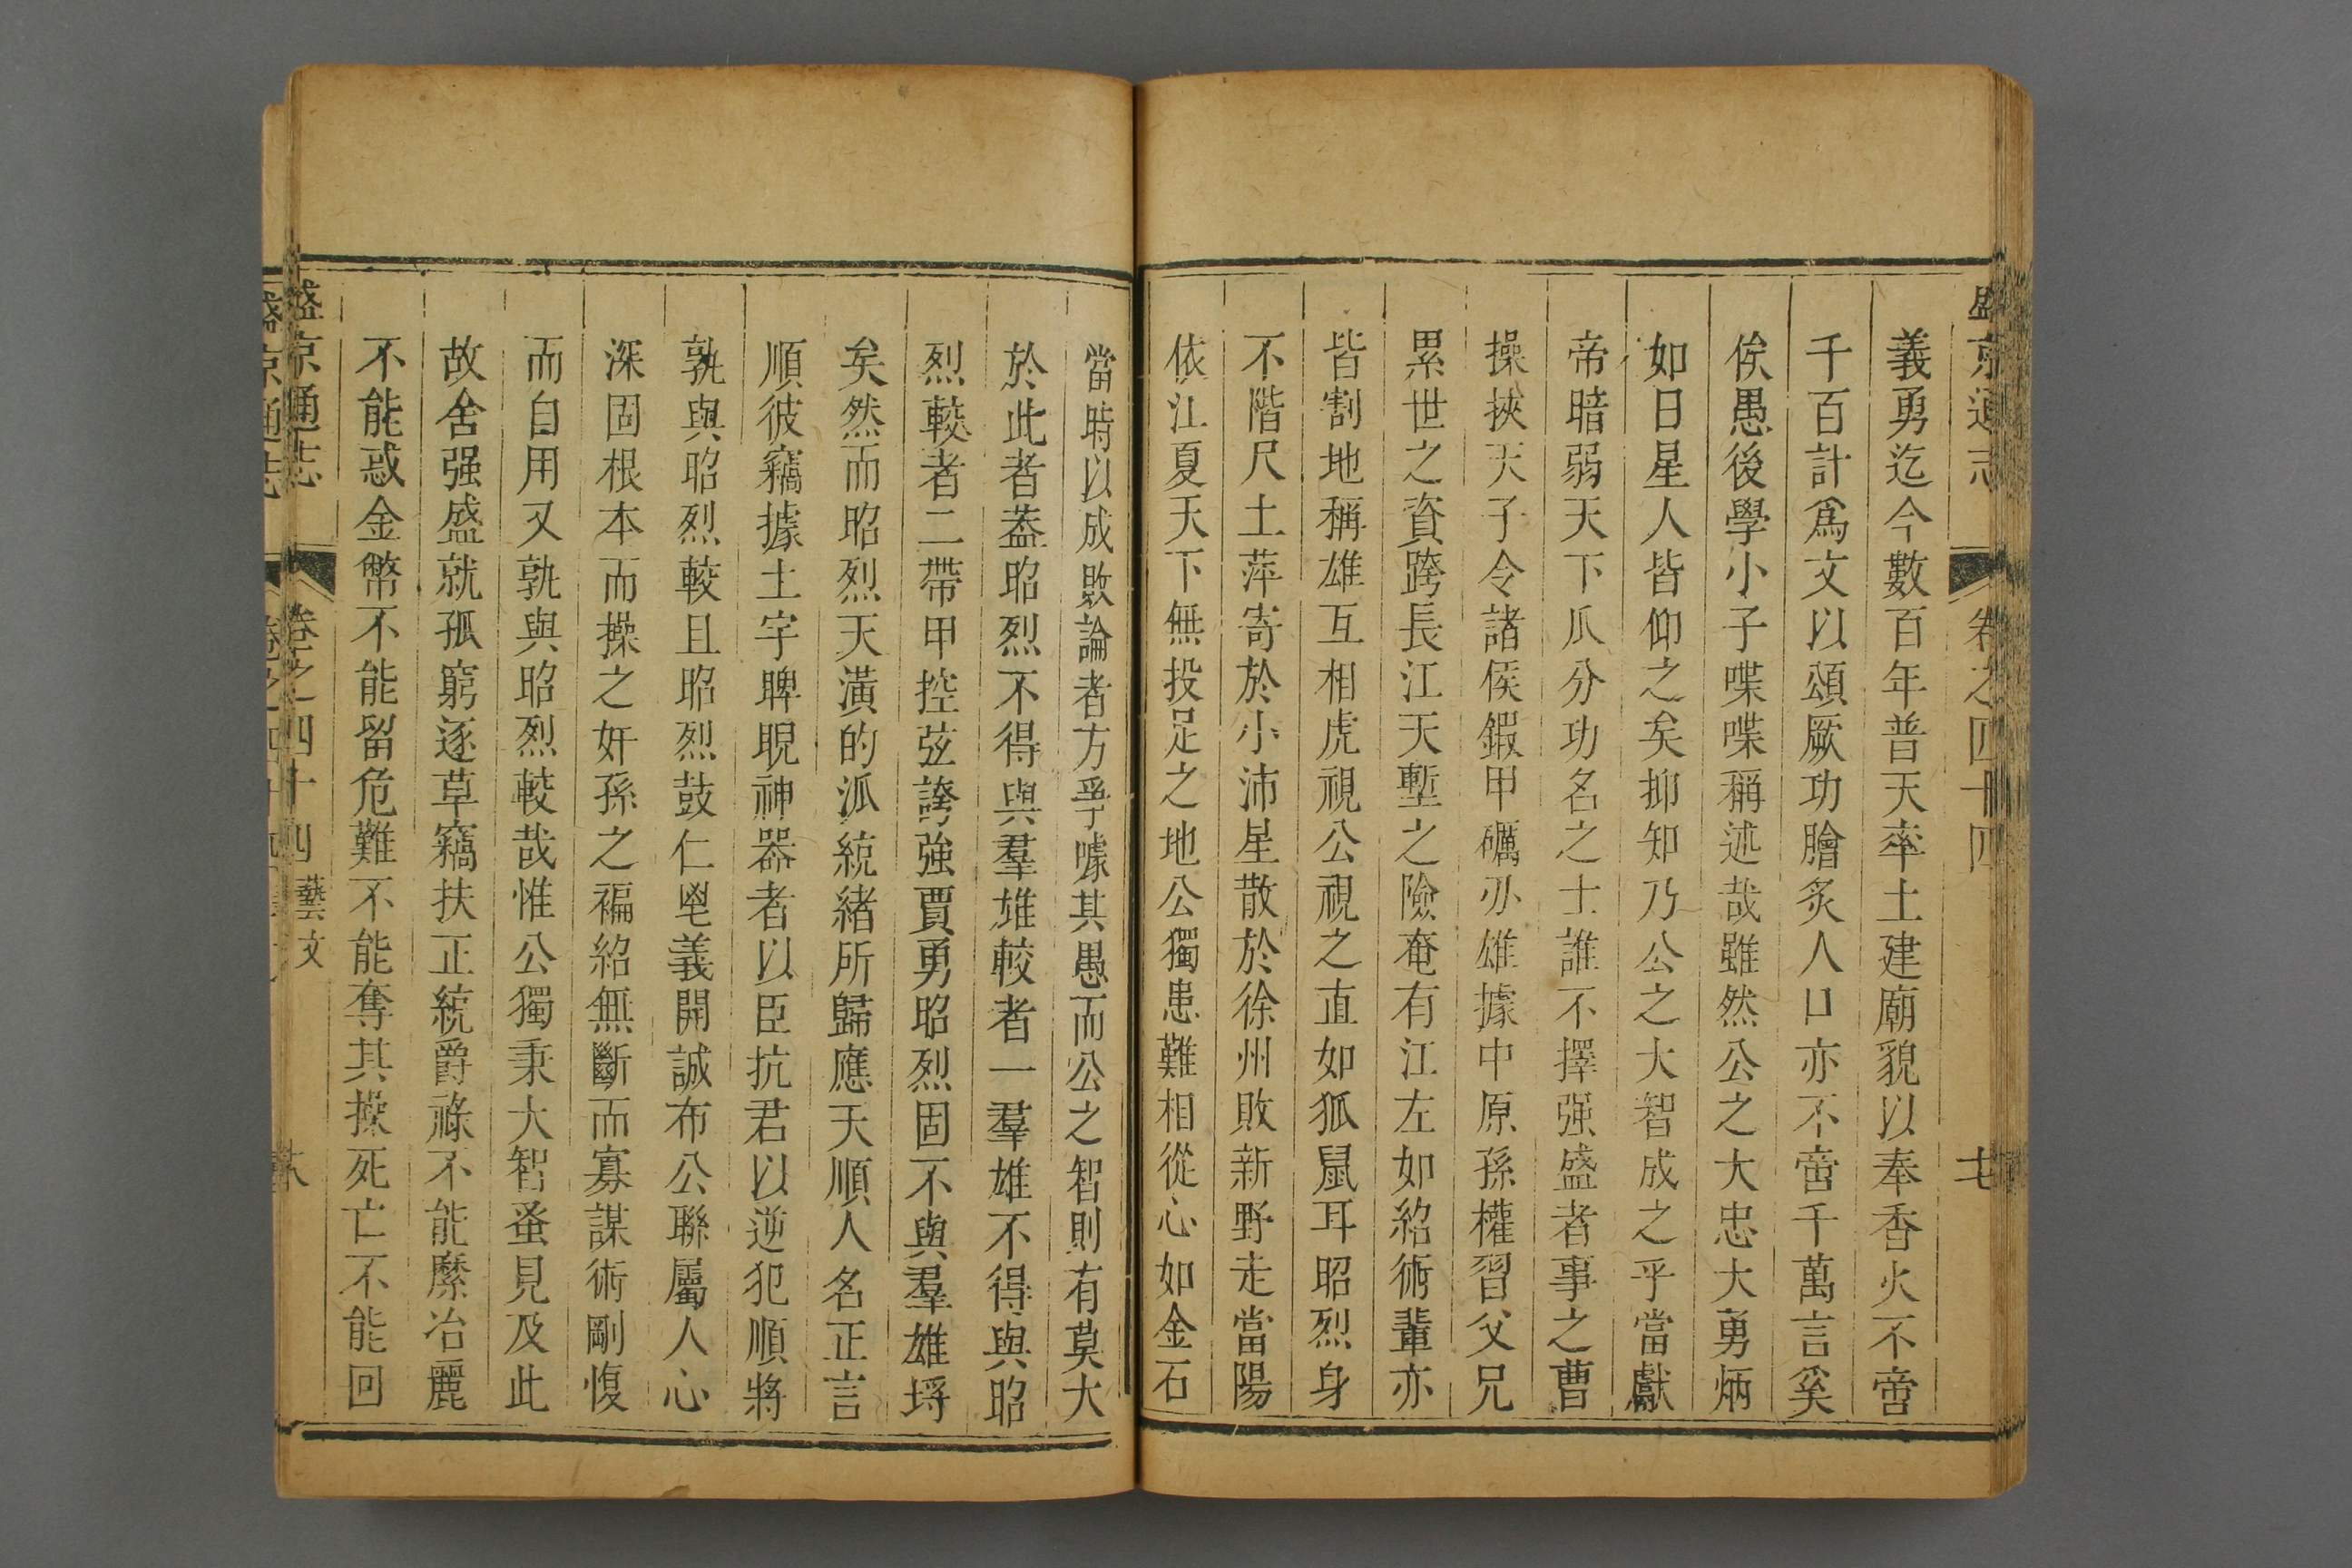 盛京通志 卷之四十四 十七
義勇迄今數百年普天率土建廟貌以奉香火不啻
千百計爲文以頌厥功膾炙人口亦不啻千萬言奚
俟愚後學小子喋喋稱述哉雖然公之大忠大勇炳
如日星人皆仰之矣抑知乃公之大智成之乎當獻
帝暗弱天下瓜分功名之士誰不擇强盛者事之曹
操挾天子令諸侯鍜甲礪刅雄據中原孫權習父兄
累世之資跨長江天塹之險奄有江左如紹術輩亦
皆割地稱雄互相虎視公視之直如狐鼠耳昭烈身
不階尺土萍寄於小沛星散於徐州敗新野走當陽
依江夏天下無投足之地公獨患難相從心如金石
當時以成敗論者方爭噱其愚而公之智則有莫大
於此者葢昭烈不得與羣雄較者一羣雄不得與昭
烈較者二帶甲控弦誇強賈勇昭烈固不與羣雄埒
矣然而昭烈天潢的派統緒所歸應天順人名正言
順彼竊據土宇睥睨神器者以臣抗君以逆犯順將
孰與昭烈較且昭烈鼓仁鬯義開誠布公聯屬人心
深固根本而操之奸孫之褊紹無斷而寡謀術剛愎
而自用又孰與昭烈較哉惟公獨秉大智蚤見及此
故舍强盛就孤窮逐草竊扶正統爵祿不能縻冶麗
不能惑金幣不能留危難不能奪其操死亡不能回
盛京通志 卷之四十四 藝文 十八
盛京通志